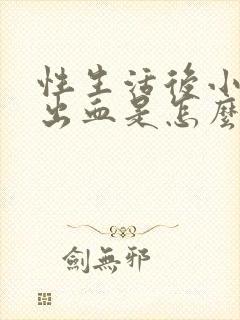 性生活後小
出血是怎麼
劍無邪